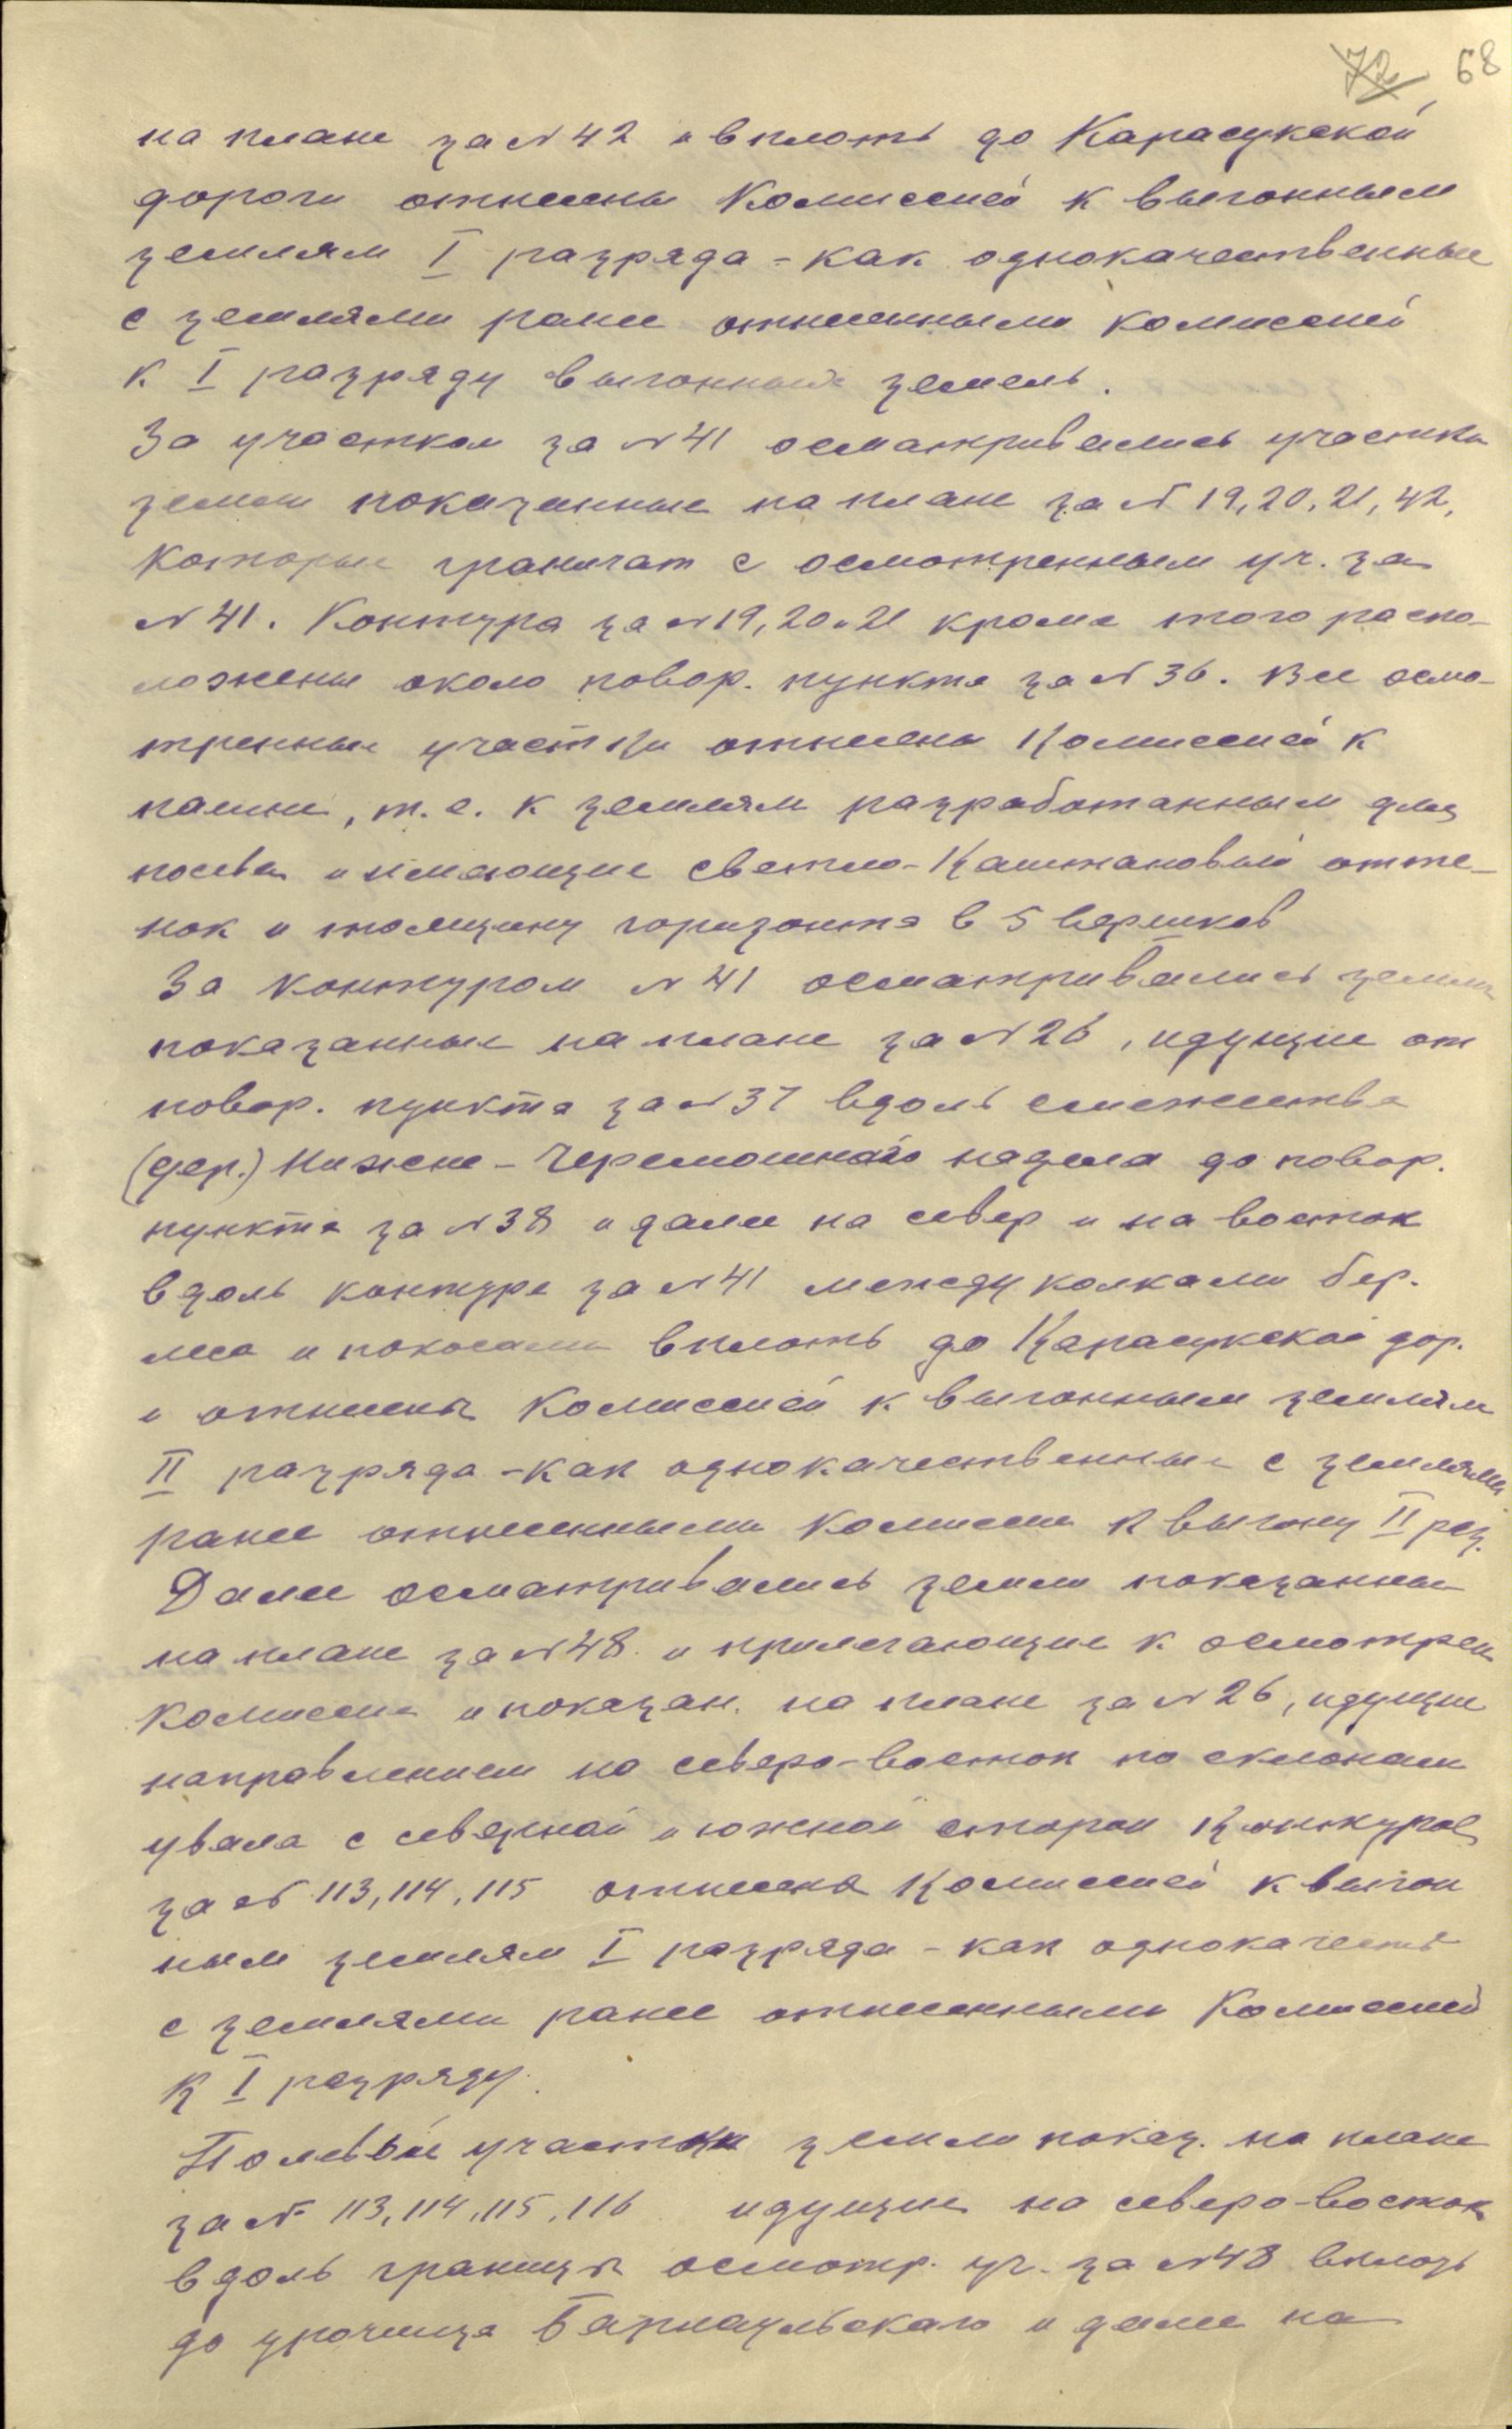 72 68
на плане за №42 и вплоть до Карасукской
дороги отнесены Комиссией к выгонным
землям I разряда - как однокачественные
с землями ранее отнесенными комиссией
к I разряду выгонных земель.
За участком за №41 осматривались участки
земли показанные на плане за № 19, 20, 21, 42,
которые граничат с осмотренным уч. за
№41. Контура за №19, 20 и 21 кроме того распо-
ложены около повор. пункта за №36. Все осмо-
тренные участки отнесены Комиссией к
пашне, т.е. к землям разработанным для
посева и имеющие светло-каштановый отте-
нок и толщину горизонта в 5 вершков
За контуром №41 осматривались земли
показанные на плане за №26, идущие от
повор. пункта за №37 вдоль смежества
(дер.) Нижне-Черемошнаго надела до повор.
пункта за №38 и далее на север и на восток
вдоль контура за №41 между колками бер.
леса и покосами вплоть до Карасукской дор.
и отнесены Комиссией к выгонным землям
II разряда - как однокачественные с землями
ранее отнесенными комиссией к выгону II раз.
Далее осматривались земли показанные
на плане за №48 и прилегающие к осмотрен
комиссией и показан. на плане за №26, идущие
направлением на северо-восток по склонам
увала с северной и южной сторон контуров
за № 113, 114, 115 отнесена Комиссией к выгон
ным землям I разряда - как однокачеств
с землями ранее отнесенными Комиссией
к I разряду.
Полевые участки земли показ. на плане
за № 113, 114, 115, 116 идущие на северо-восток
вдоль границы осмотр. уч. за №48 вплоть
до урочища Барнаульскаго и далее на